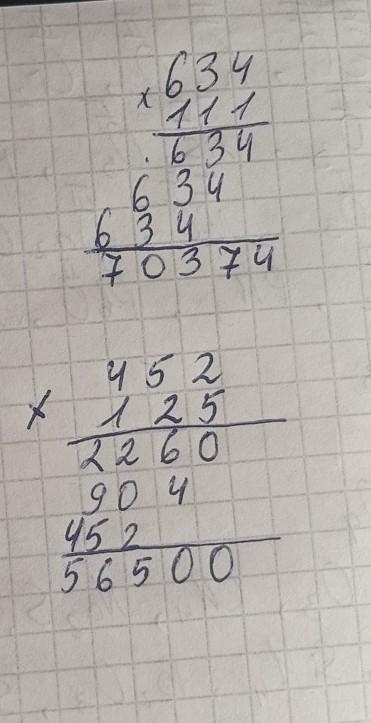 × 634
111
634
634
634
70374
452
× 125
2260
904
452
56500